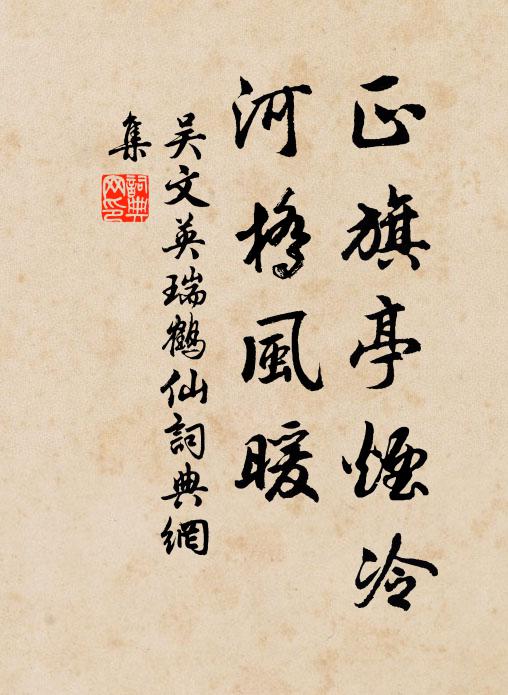 正旗亭煙冷
河橋風暖
吴文英瑞鶴仙詞典網
集
詞典
网印